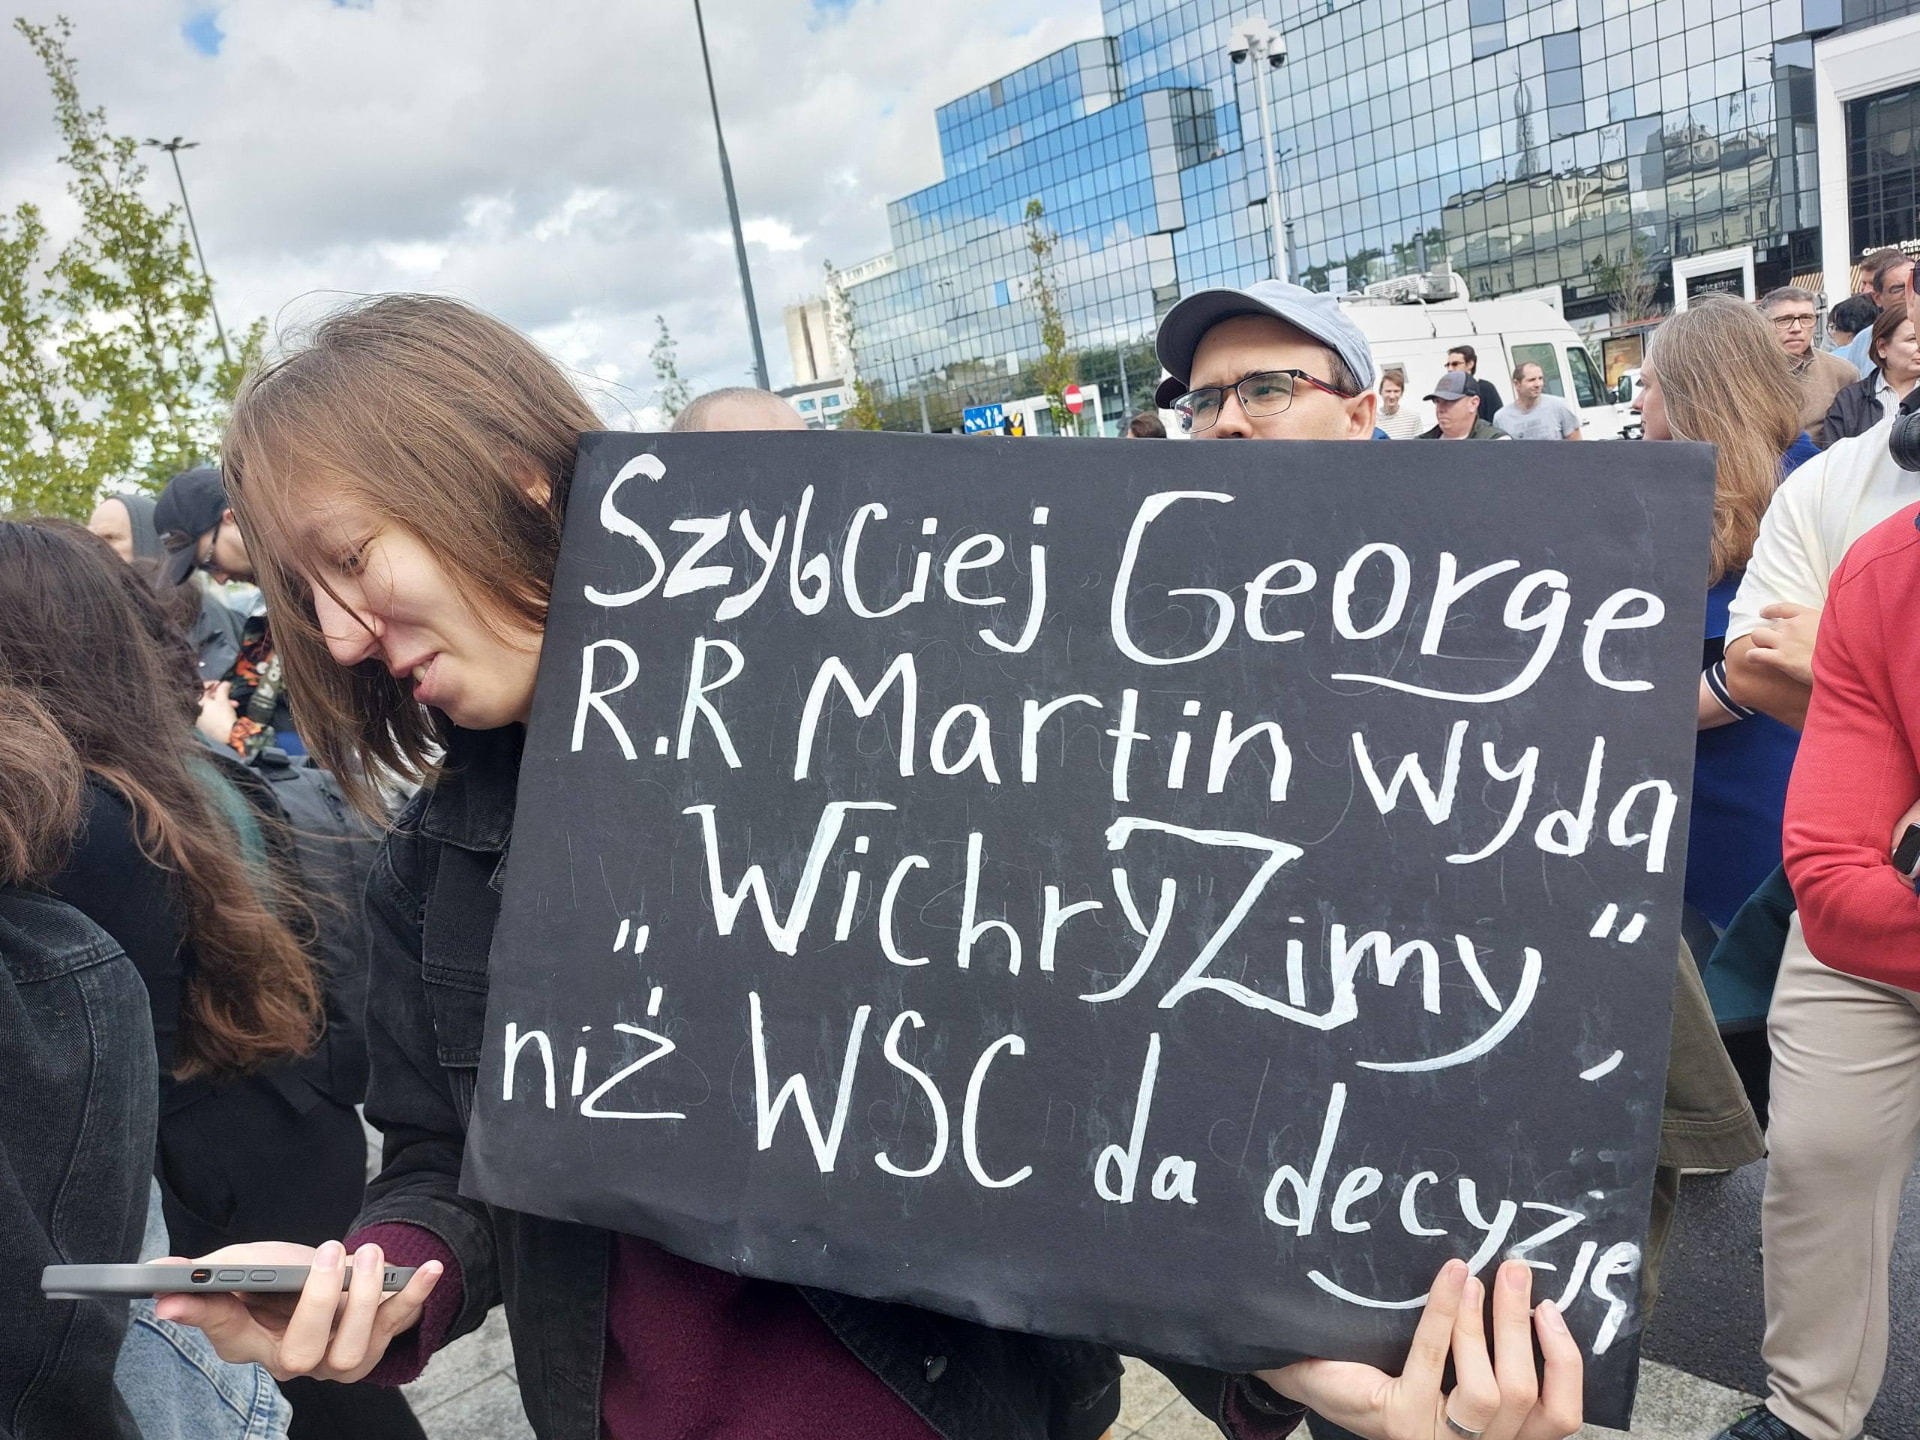 Szybciej George
R.R Martin wyda
„Wichry Zimy”,
niż WSC da decyzję